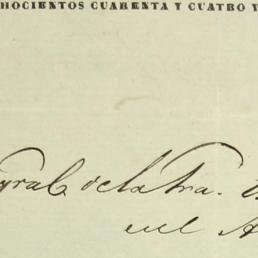 HOCIENTOS CUARENTA Y CUATRO Y
gral de la Tra.
del A